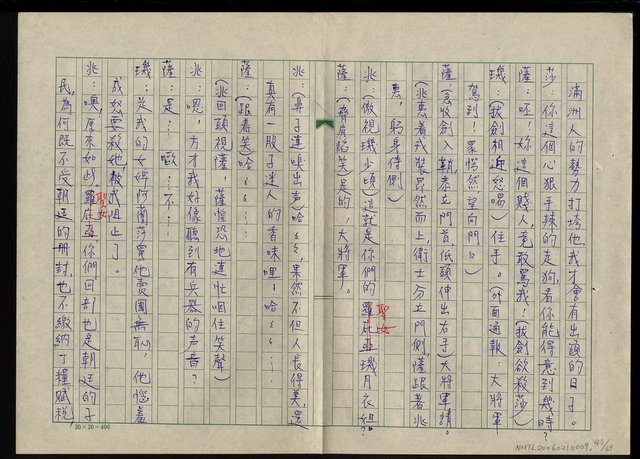 滿洲人的勢力打垮他我才會有出頭的日子。
莎：你這個心狠手辣的走狗，看你能得意到幾時？
薩：呸！妳這個賤人，竟敢罵我！（拔劍欲殺莎）
璣：（拔劍相迎怒喝）住手。（外面通報：大將軍
駕到！眾愕然望向門口）
薩：（急收劍入鞘奔立門首，低頭伸出右手）大將軍請。
（兆惠着戎裝昂然而上，衛士分立門側，薩跟着兆
惠，躬身侍側）
兆：（傲視璣少頃）這就是你們的聖女璣月衣妲？
薩：（齊肩諂笑）是的，大將軍。
兆：（鼻子連嗅出声）哈ミミ，果然不但人長得美，還
真有一股子迷人的香味哩！哈ミミ……
薩：（跟着笑）哈……
（兆回頭視薩，薩惶恐地連忙咽住笑聲）
兆：嗯！方才我好像聽到有兵器的声音？
薩：是……歐……不……
璣：是我的女婢阿蘭莎責他賣國無恥，他惱羞
成怒要殺她被我阻止了。
兆：噢！原來如此！聖女你們回部也是朝廷的子
民，為何既不受朝廷的册封，也不繳納丁糧賦稅，
20×20=400
NMTL20060210009, 43/64